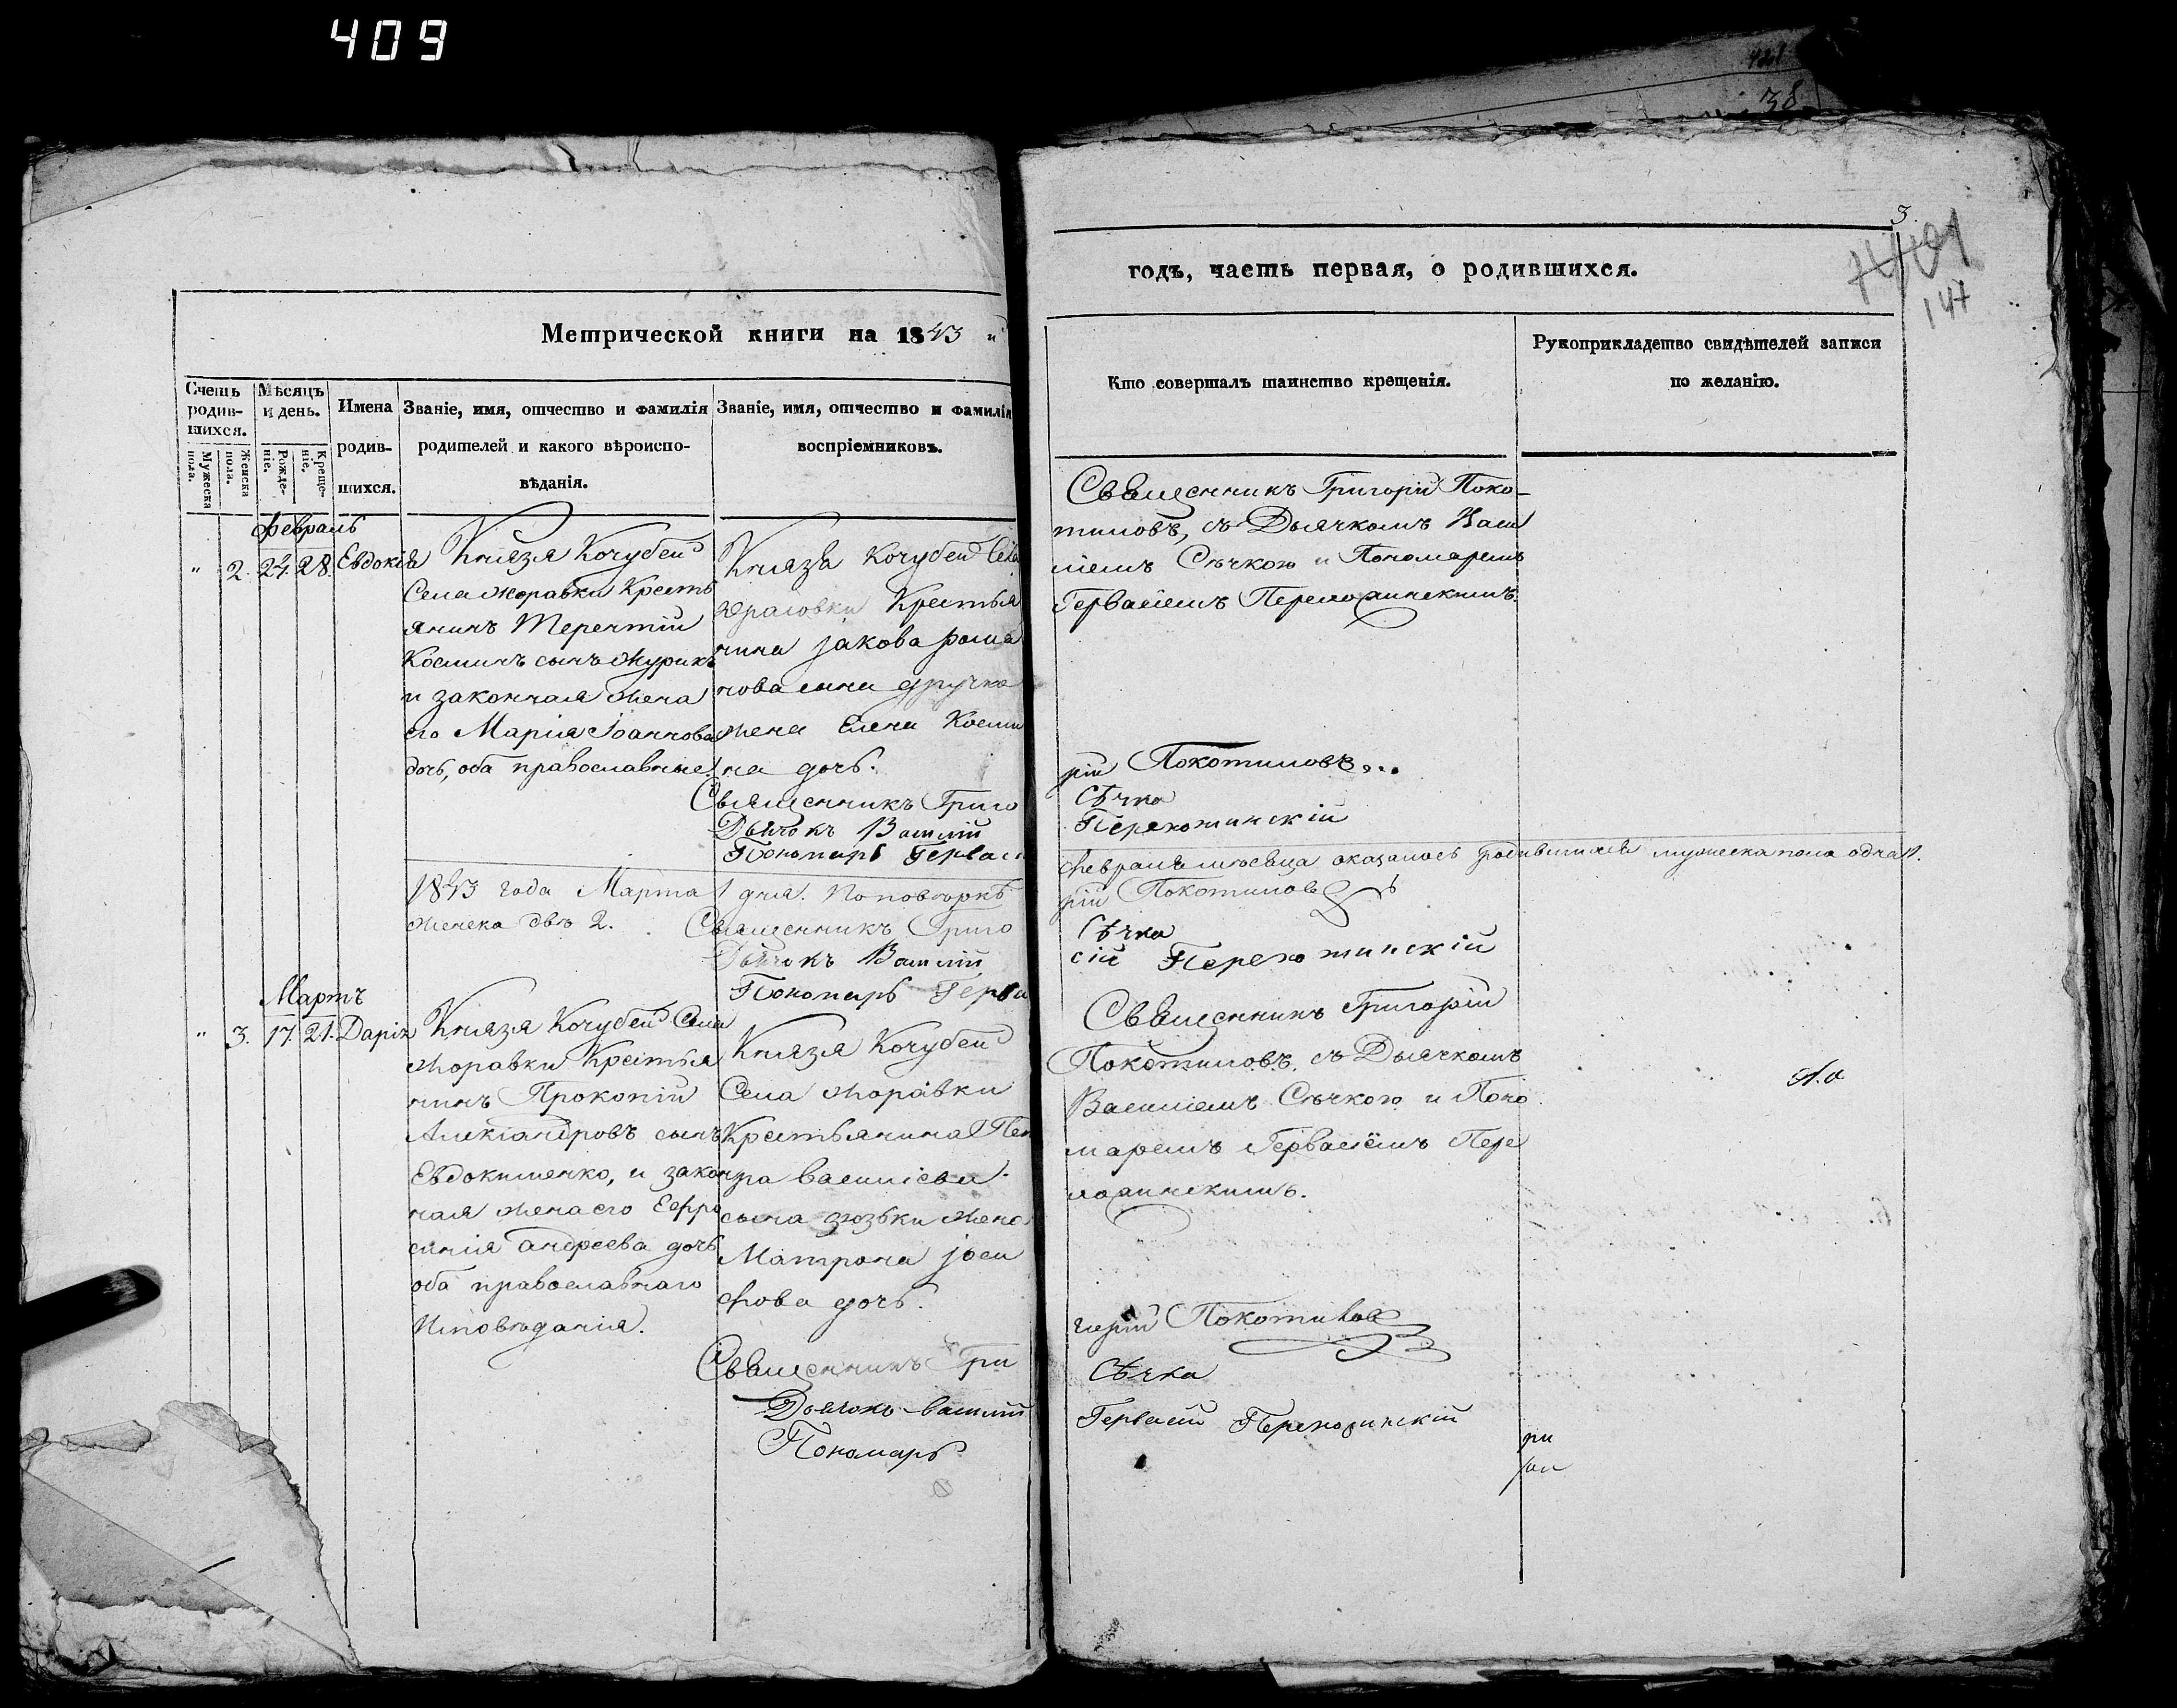 409
38
3
147
Метрической книги на 1843
годъ, часть первая, о родившихся.
Счетъ родив-шихся.
Мужеска пола.
Женска пола.
Мѣсяцъ и день.
Рожде-ніе.
Креще-ніе.
Имена родив-шихся.
Званіе, имя, отчество и фамилія
родителей и какого вѣроиспо-
вѣданія.
Званіе, имя, отчество и фамилія
воспріемниковъ.
Кто совершалъ таинство крещенія.
Рукоприкладство свидѣтелей записи
по желанію.
Февраль
" 2. 24. 28. Евдокія
Князя Кочубей
Села Жоравки Кресть
янинъ Терентій
Косминъ сынъ Журикъ
и законная жена
его Марія Іоаннова
дочь, оба православные.
Князя Кочубей Села
Крестья
нина Іакова Рома
нова сына
жена Елена Косми
на дочь.
Священникъ Григо
Дьячокъ Василій
Пономарь Герваси
Священникъ Григорій Поко-
тиловъ, съ Дьячкомъ Васи
ліемъ Сѣчкою и Пономаремъ
Гервасіемъ
рій Покотиловъ
Сѣчка
1843 года Марта 1 дня. По повѣркѣ
женска двѣ 2.
Священникъ Григо
Дьячокъ Василій
Пономарь Герва
Февраля мѣсяца оказалось родившихся мужеска пола одна 1.
рій Покотиловъ
Сѣчка
сій
Мартъ
" 3. 17. 21. Дарія
Князя Кочубей Села
Жоравки Крестья
нинъ Прокопій
Александровъ сынъ
Евдокименко, и закон
ная жена его Евфро
синія Андреева дочь
оба православнаго
Исповѣданія.
Князя Кочубей
Села Жоравки
Крестьянина Пет
ра Василіева
сына Зюзьки жена
Матрона Іоси
фова дочь.
Священникъ Гри
Дьячокъ Василій
Пономарь
Священникъ Григорій
Покотиловъ, съ Дьячкомъ
Василіемъ Сѣчкою и Поно
маремъ Гервасіемъ Пере
горій Покотиловъ
Сѣчка
Гервасій